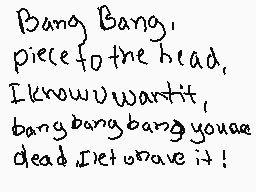 Bang Bang,
piece to the head,
I know U want it,
bang bang bang you are
dead, I let U have it!